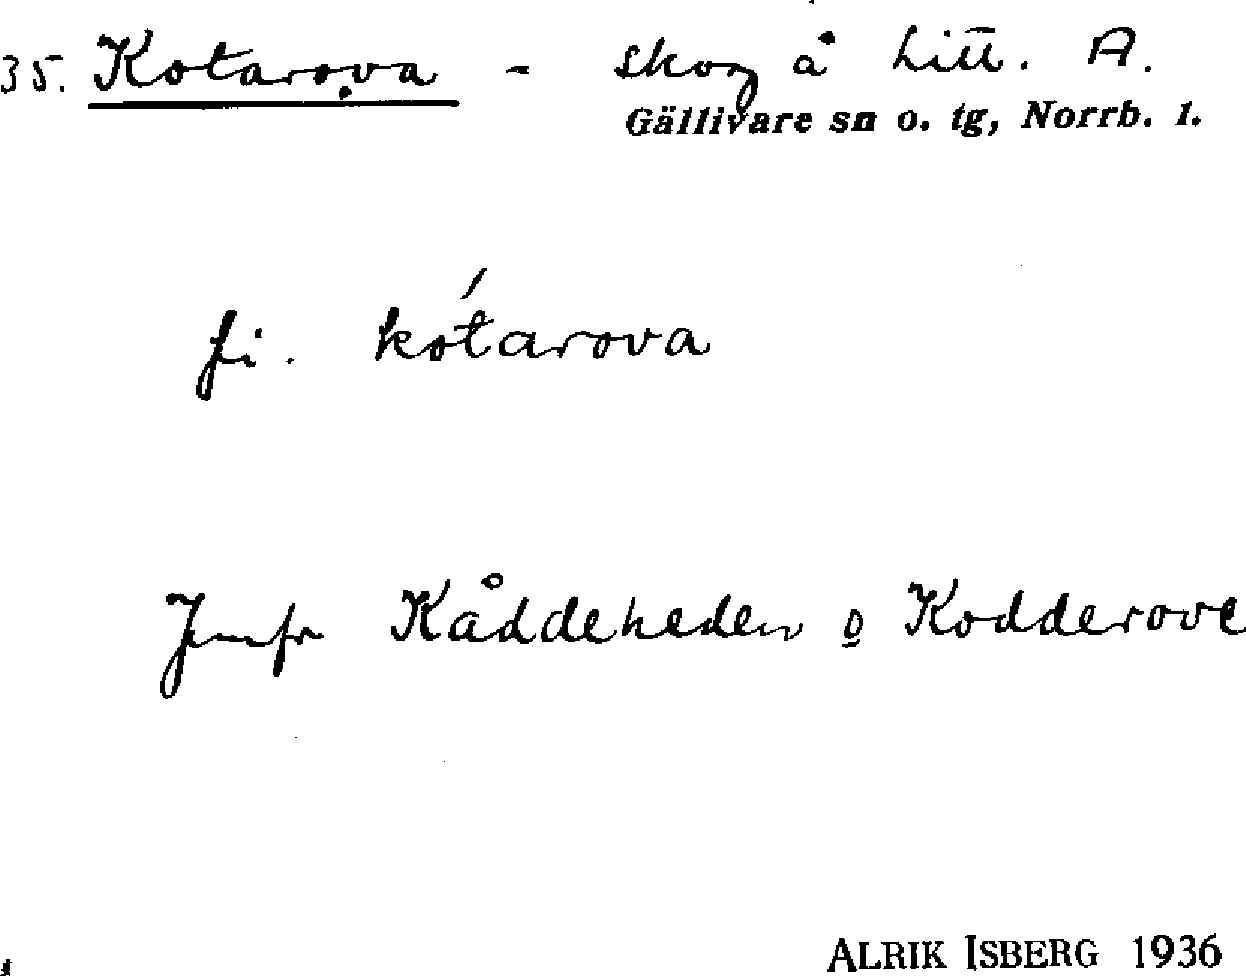 35. Kotarova - skog å Litt. A.
Gällivare sn o. tg, Norrb. l.
fi. kótarova
Jmfr Kåddeheden o Kodderove
ALRIK ISBERG 1936